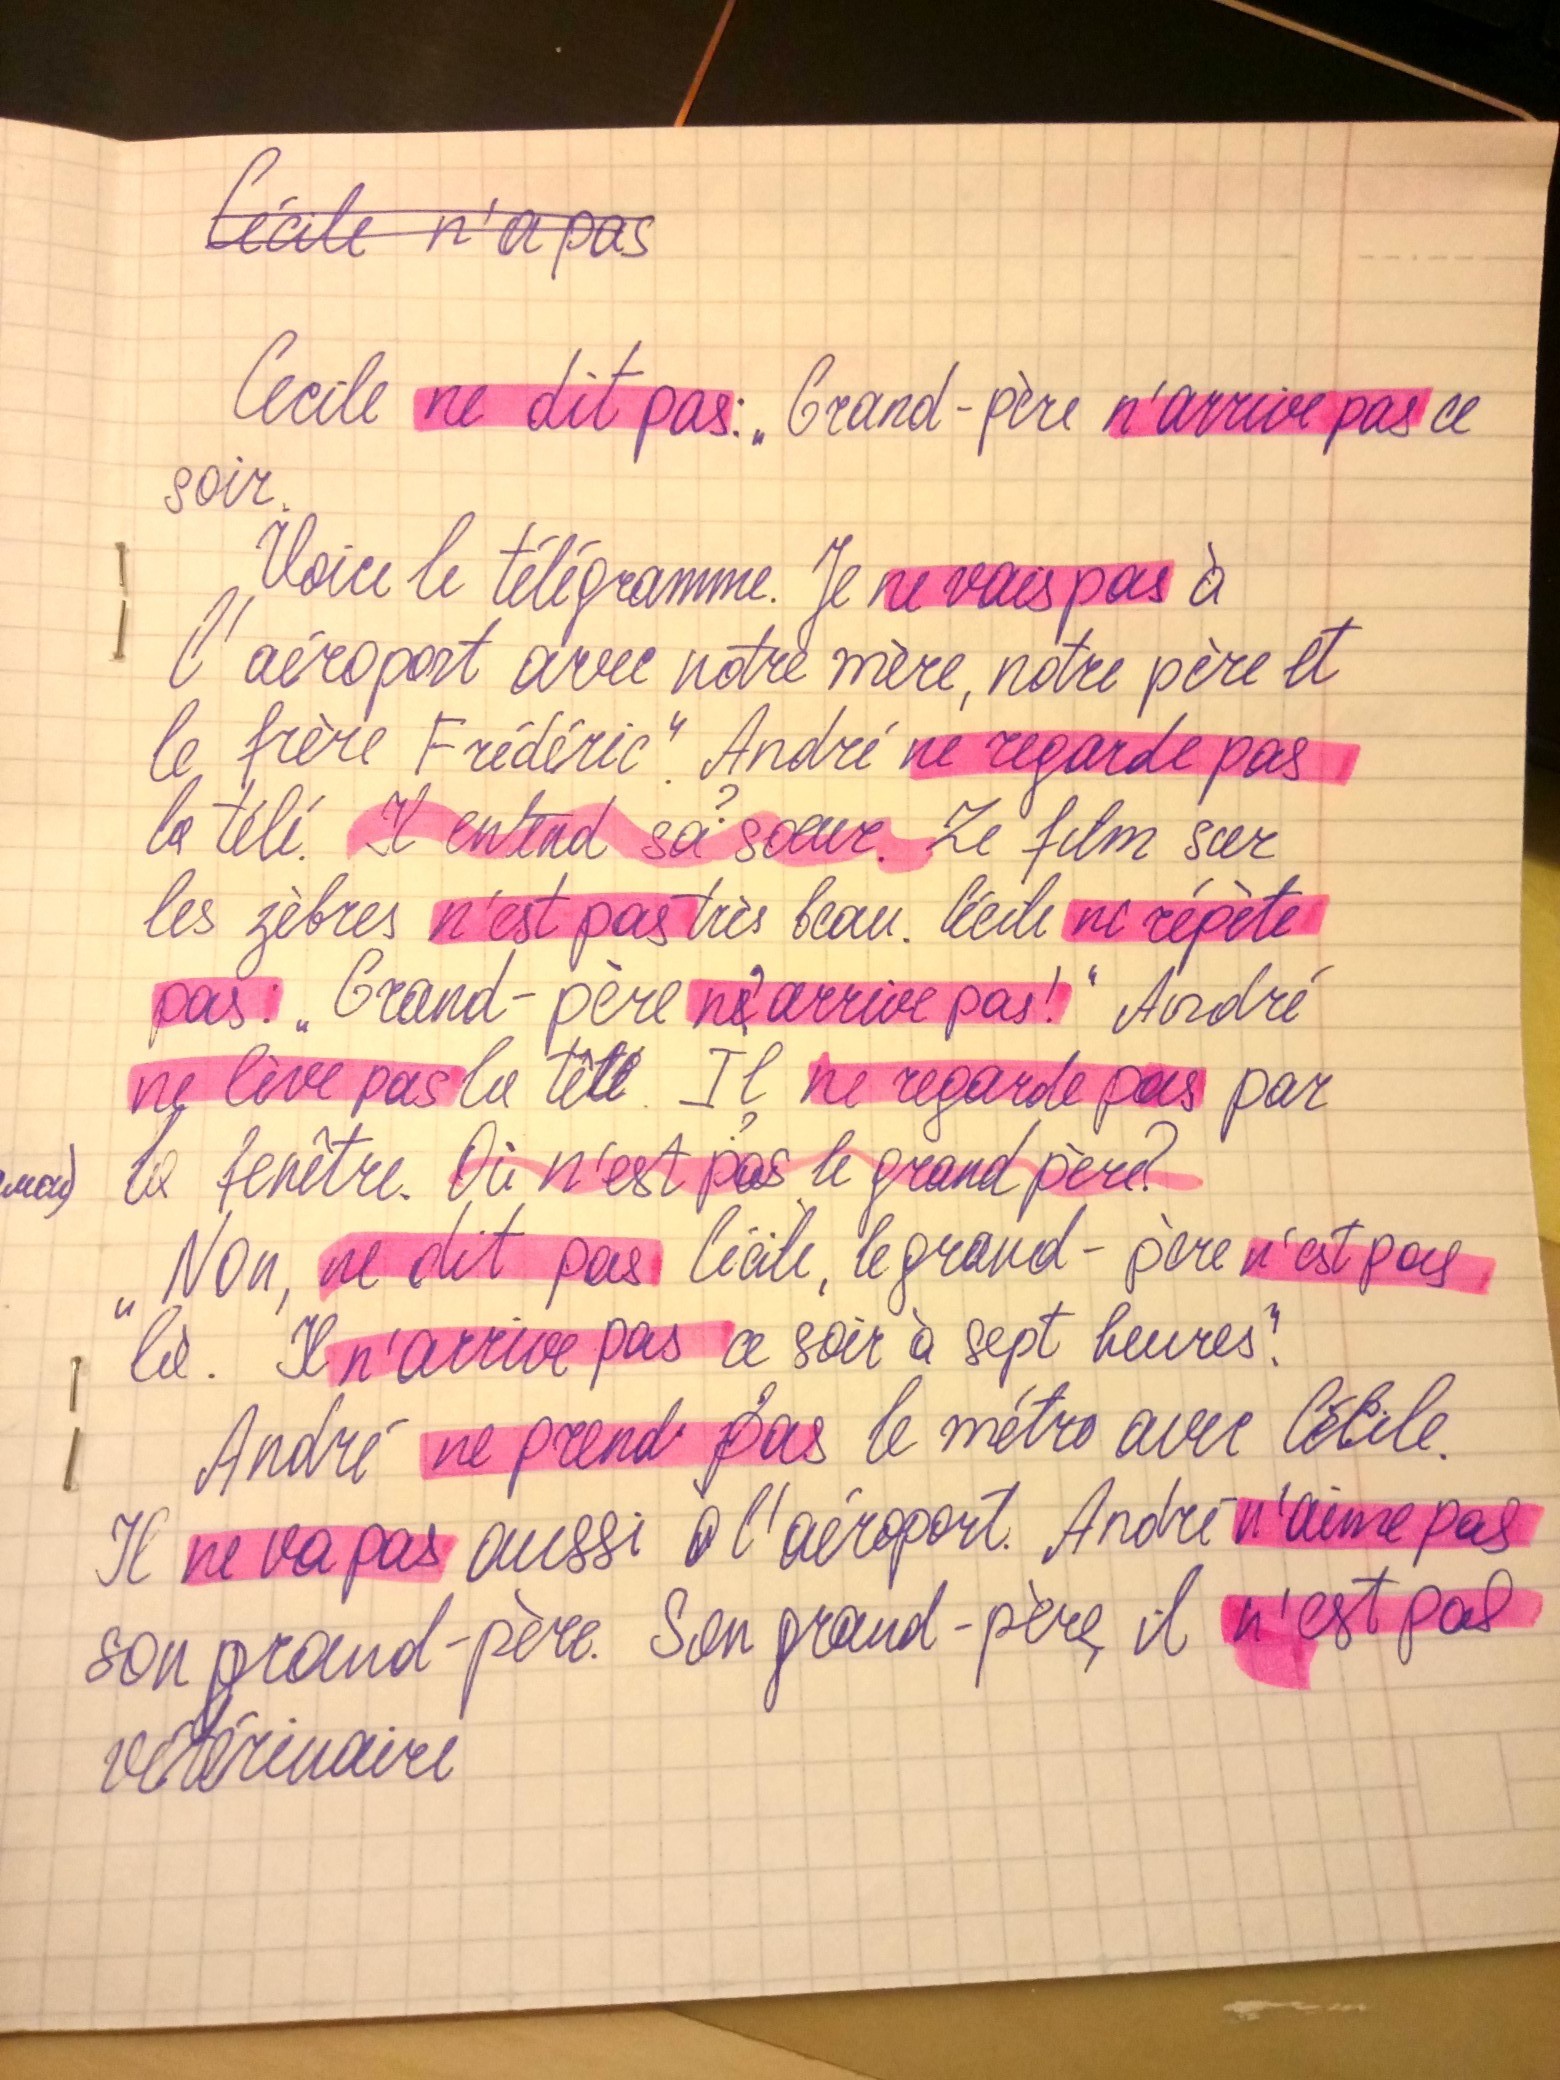 Cécile n'a pas
Cecile ne dit pas: „Grand-père n'arrive pas ce
soir.
„Voice le télégramme. Je ne vais pas à
l'aéroport avec notre mère, notre père et
le frère Frédéric". André ne regarde pas
la télé. Il entend sa sœur. ? Le film sur
les zèbres n'est pas très beau. Cécile ne répète
pas: „Grand-père n'arrive pas!" André
ne lève pas la tête. Il ne regarde pas par
la fenêtre. Où n'est pas le grand père? ?
„Non, ne dit pas Cécile, le grand-père n'est pas
là. Il n'arrive pas ce soir à sept heures".
André ne prend pas le métro avec Cécile.
Il ne va pas aussi à l'aéroport. André n'aime pas
son grand-père. Son grand-père, il n'est pas
vétérinaire